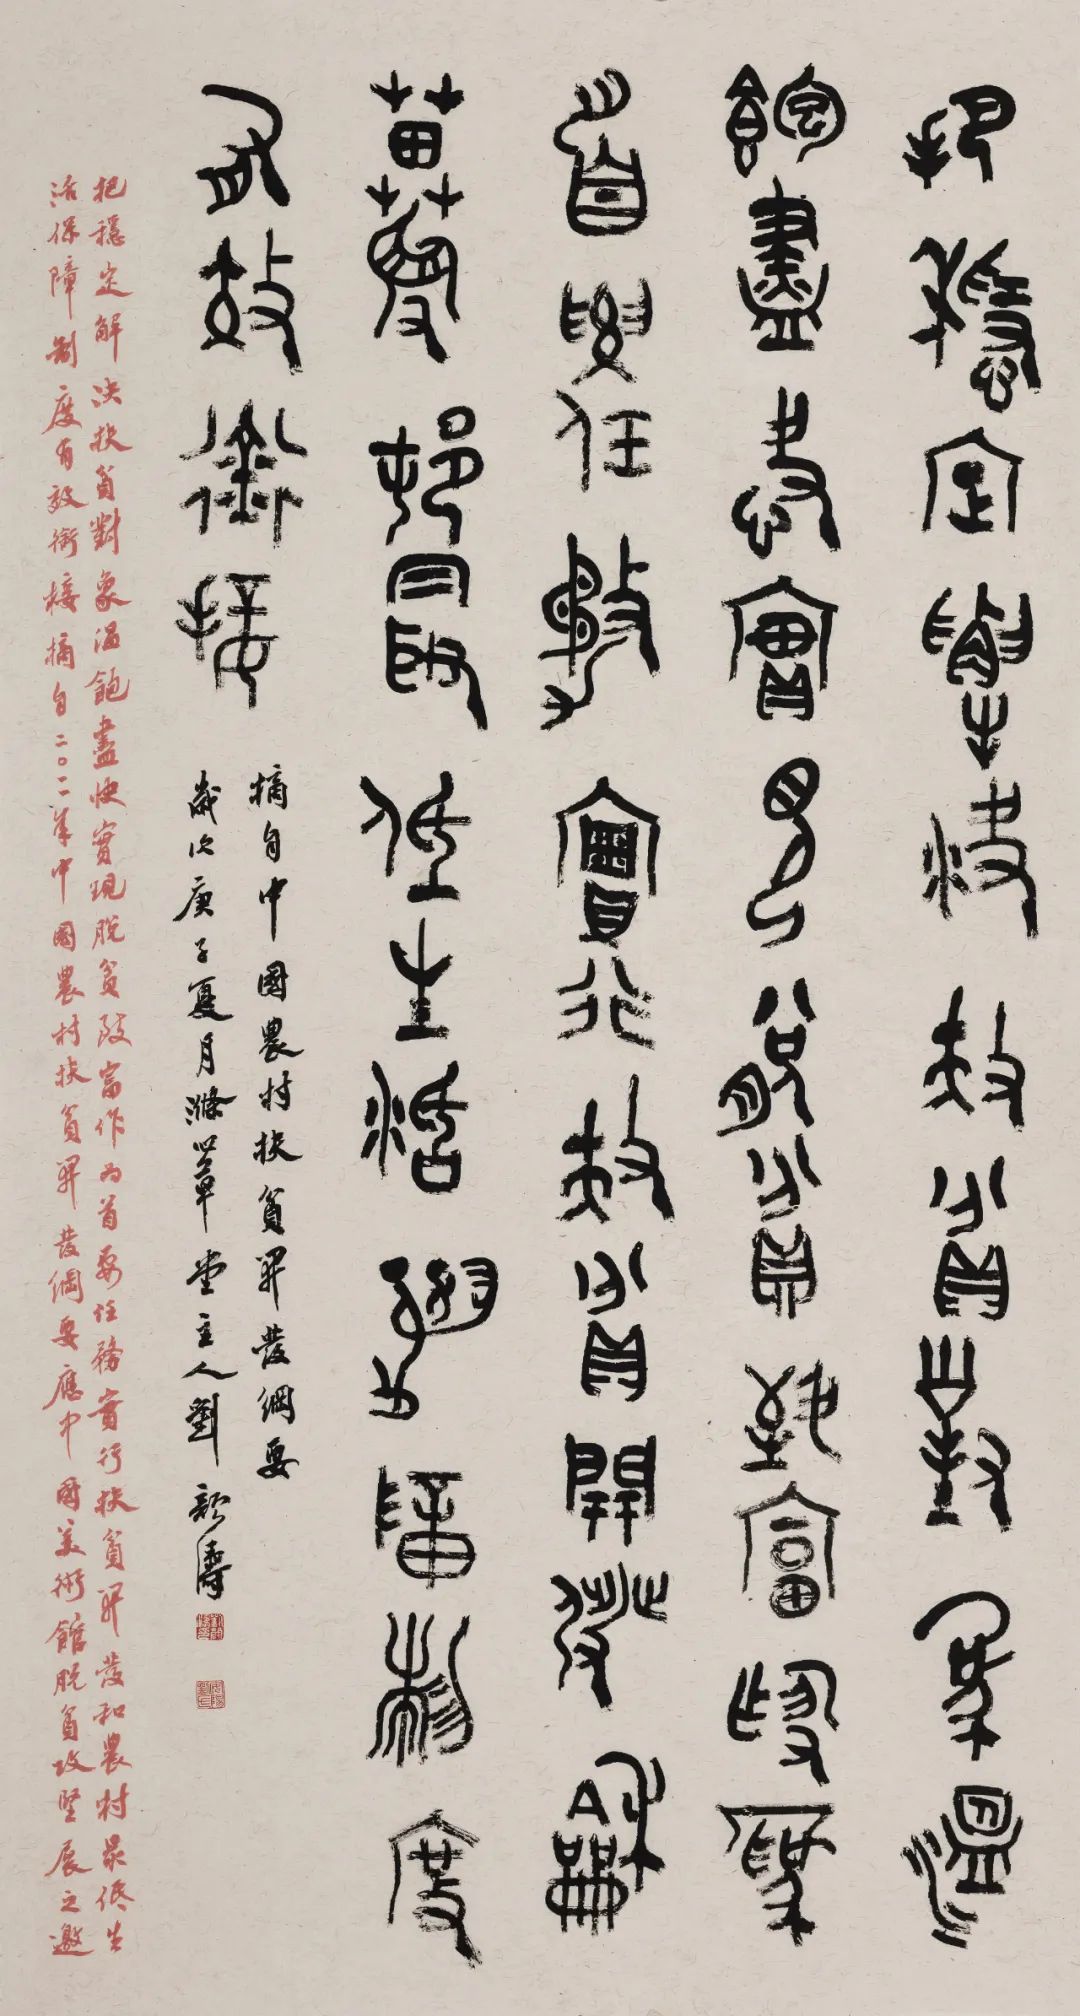 把穩定解決扶貧對象溫
飽盡快實現脫貧致富作為
首要任務實行扶貧開發和
農村最低生活保障制度
有效銜接
摘自中國農村扶貧開發綱要
歲次庚子夏月滌堂主人劉濤
把穩定解决扶貧對象溫飽盡快實現脫貧致富作为首要任務實行扶貧開發和農村最低生
活保障制度有效銜接摘自二〇一一年中國農村扶貧開發綱要應中國美術館脫貧攻堅展之邀